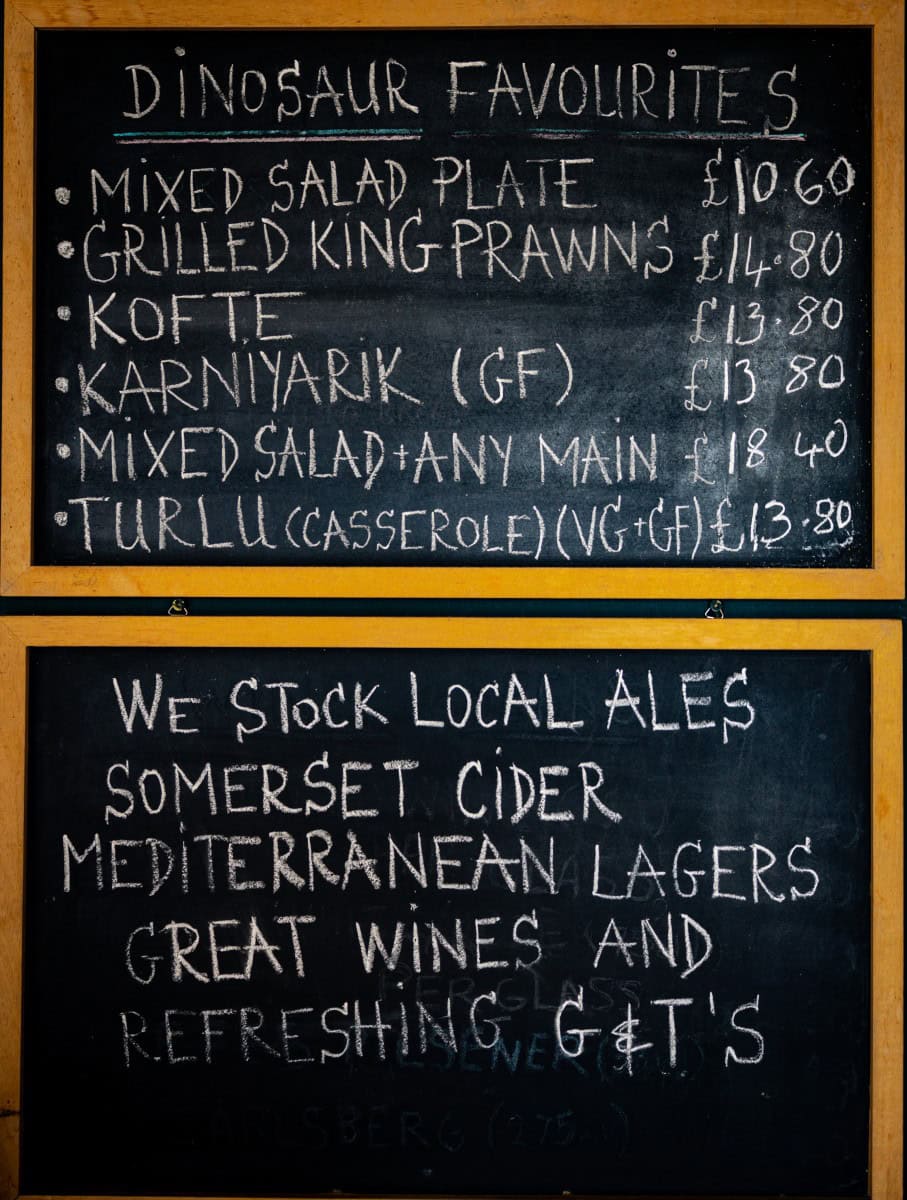 DiNOSAUR FAVOURiTES
• MiXED SALAD PLATE £10 60
• GRILLED KiNG PRAWNS £14.80
• KOFTE £13.80
• KARNIYARIK (GF) £13 80
• MiXED SALAD + ANY MAiN £18 40
• TURLU (CASSEROLE) (VG+GF) £13.80
WE STOCK LOCAL ALES
SOMERSET CiDER
MEDiTERRANEAN LAGERS
GREAT WiNES AND
PER GLASS
REFRESHiNG G&T'S
CARLSBERG (275